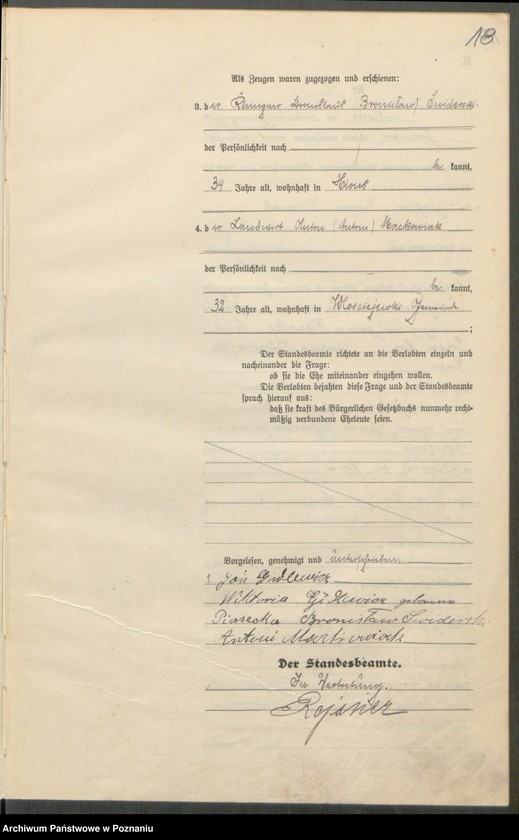 18
Als Zeugen waren zugezogen und erschienen:
3. der (Bronisław) Świderski
der Persönlichkeit nach
be kannt,
34 Jahre alt, wohnhaft in Xions
4. der Landwirt Anton (Antoni) Maćkowiak
der Persönlichkeit nach
be kannt,
32 Jahre alt, wohnhaft in Włosciejewki Gemeinde
;
Der Standesbeamte richtete an die Verlobten einzeln und
nacheinander die Frage:
ob sie die Ehe miteinander eingehen wollen.
Die Verlobten bejahten diese Frage und der Standesbeamte
sprach hierauf aus:
daß sie kraft des Bürgerlichen Gesetzbuchs nunmehr recht-
mäßig verbundene Eheleute seien.
Vorgelesen, genehmigt und unterschrieben
Jan Gidlewicz
Wiktoria Gidlewicz geborene
Piasecka Bronisław Świderski
Antoni
Der Standesbeamte.
In Vertretung.
Archiwum Państwowe w Poznaniu